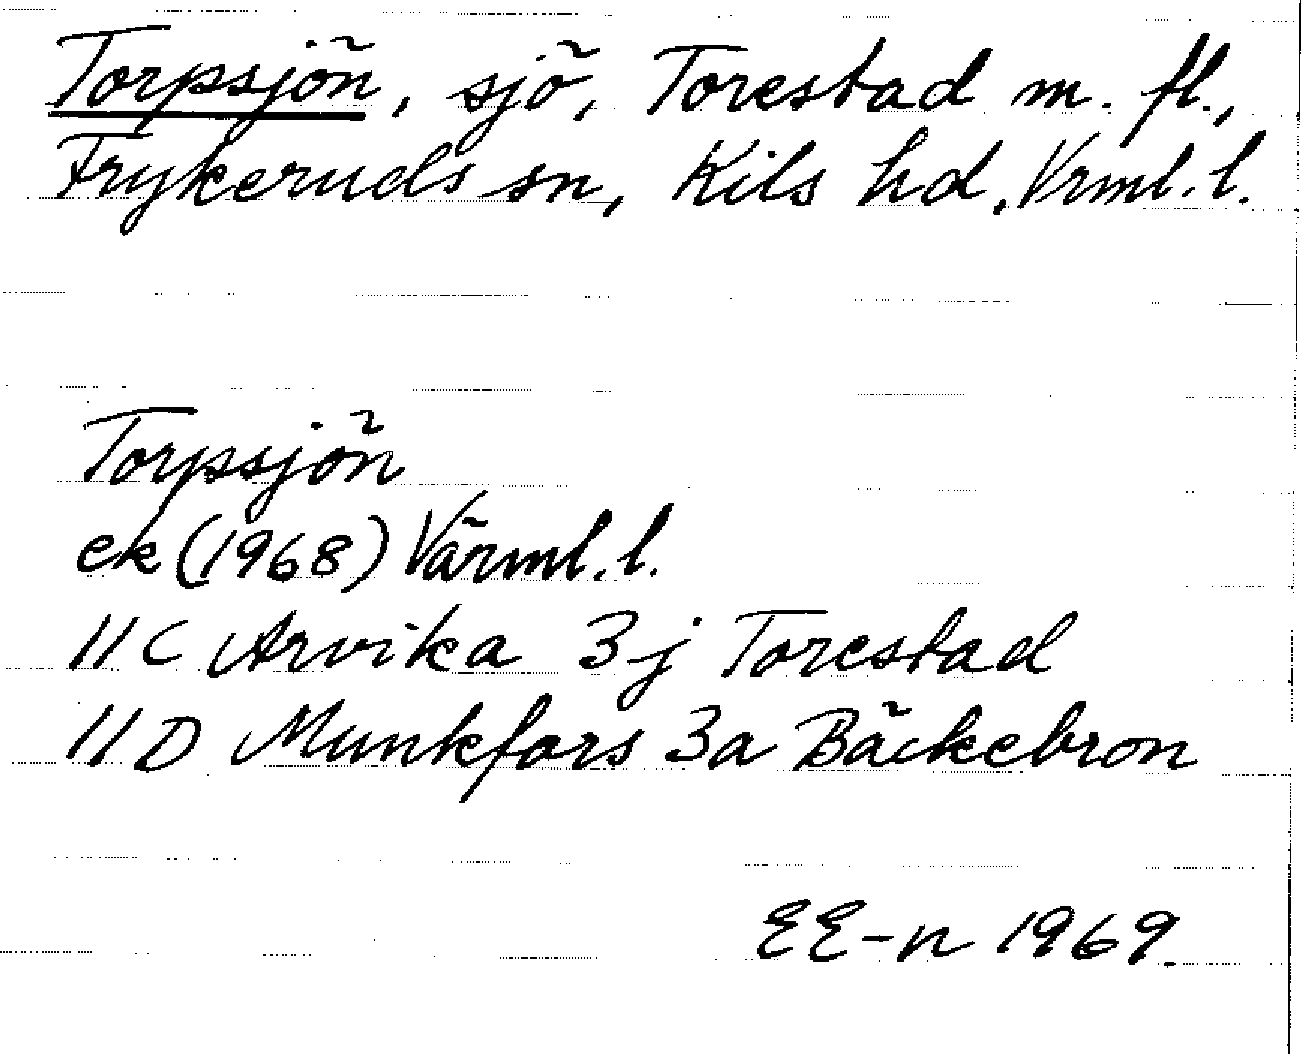 Torpsjön, sjö, Torestad m. fl.,
Frykeruds sn, Kils hd, Vrml. l.
Torpsjön
ek (1968) Värml. l.
11 C Arvika 3 j Torestad
11 D Munkfors 3a Bäckebron
EE-n 1969.